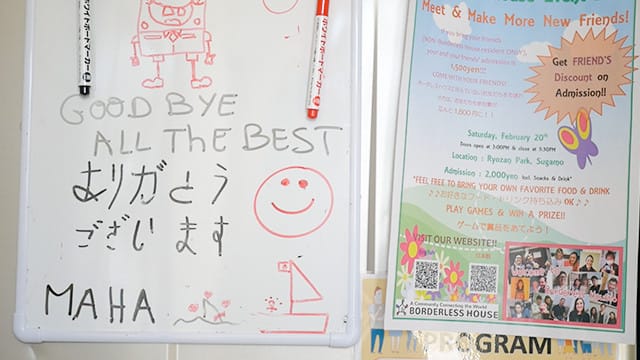 GOOD BYE
ALL THE BEST
ありがとう
ございます
MAHA
ホワイトボードマーカー
ホワイトボードマーカー
Meet & Make More New Friends!
If you bring your friends
(NON-Borderless House resident ONLY),
your and your friends' admission is
1,500yen!!!
COME WITH YOUR FRIENDS!
なんと1,800円に!!
Get FRIEND'S
Discount on
Admission!!
Saturday, February 20th
Doors open at 3:00PM & close at 5:30PM
Location : Ryozan Park, Sugamo
Admission : 2,000yen Incl. Snacks & Drink*
*FEEL FREE TO BRING YOUR OWN FAVORITE FOOD & DRINK
♪♪お好きなフード・ドリンク持ち込みOK♪♪
PLAY GAMES & WIN A PRIZE!!
ゲームで賞品をあてよう!
VISIT OUR WEBSITE!!
English
日本語
A Community Connecting the World
BORDERLESS HOUSE
PROGRAM